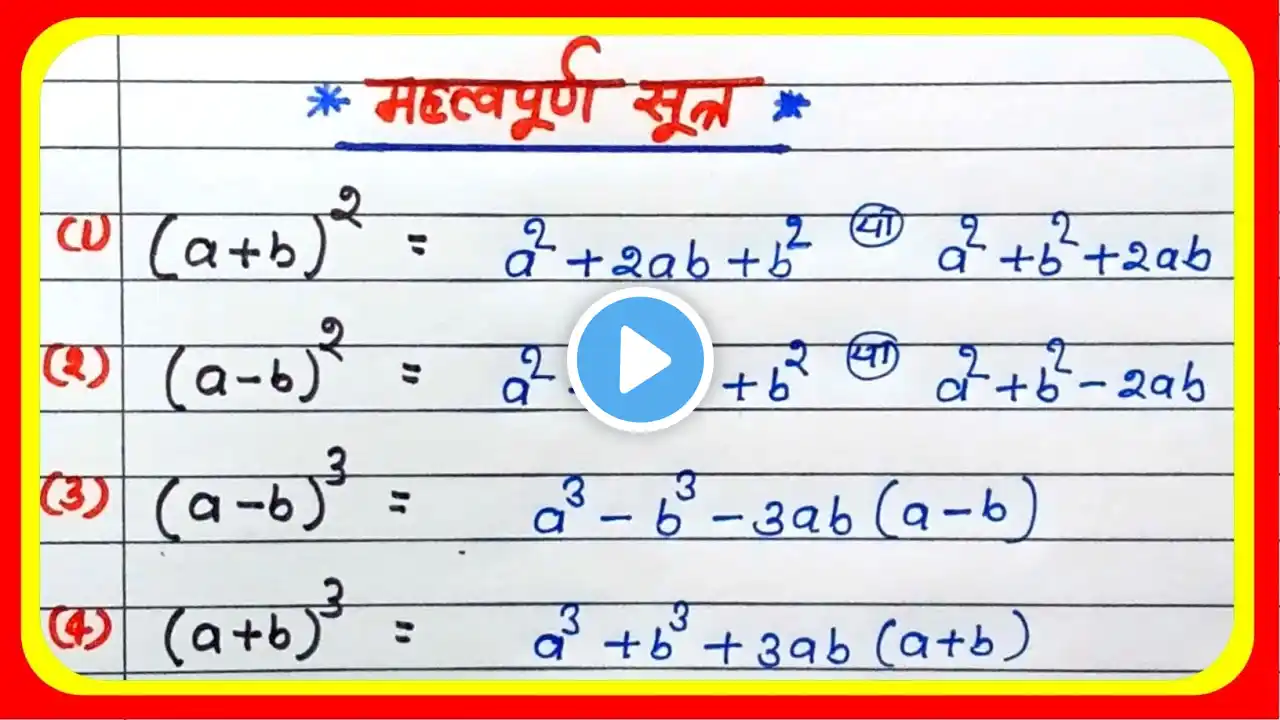 * महत्वपूर्ण सूत्र *
(1) (a+b)² = a²+2ab+b² या a²+b²+2ab
(2) (a-b)² = a²- +b² या a²+b²-2ab
(3) (a-b)³ = a³-b³-3ab(a-b)
(4) (a+b)³ = a³+b³+3ab(a+b)